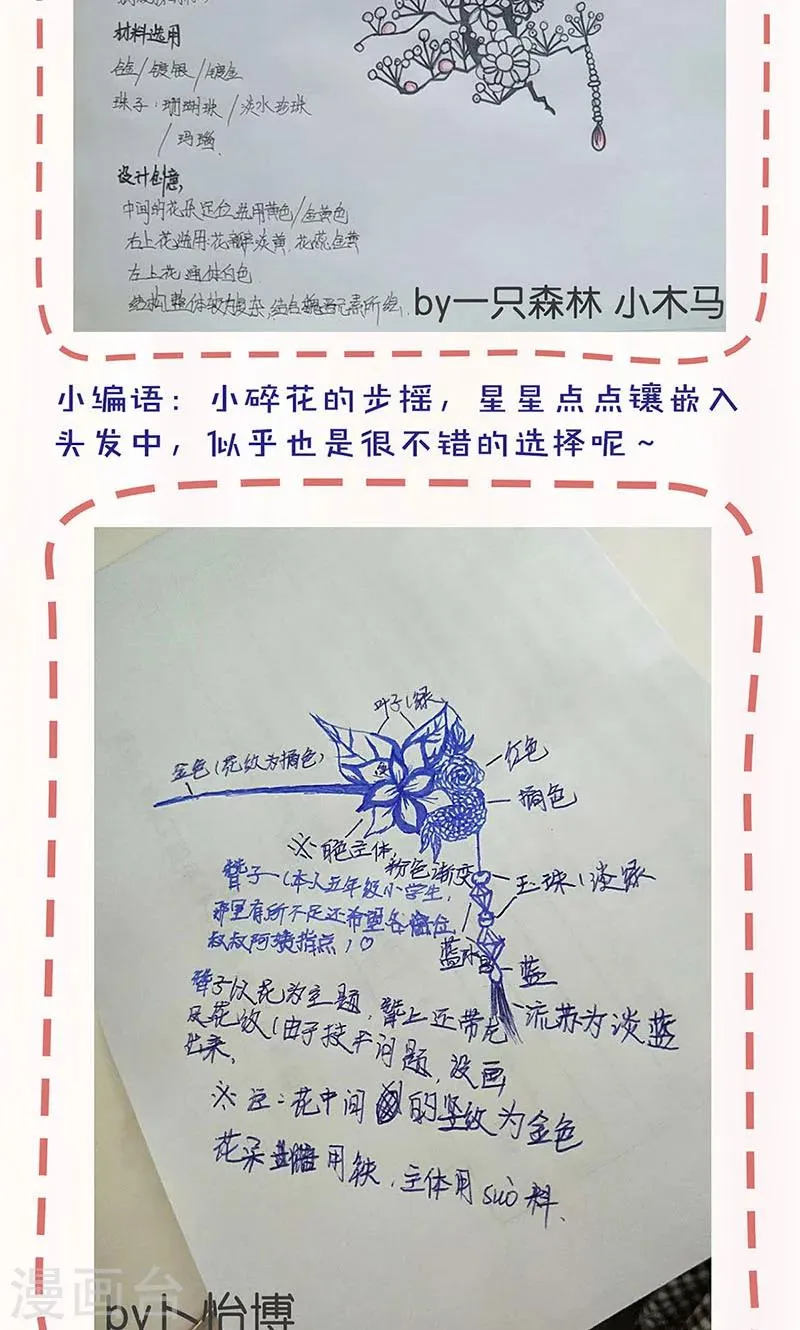 材料选用
合金/镀银/镀金
珠子:珊瑚珠/淡水珍珠
/玛瑙
设计创意
中间的花朵定位选用黄色/金黄色
右上花选用:花瓣淡黄,花蕊金黄
左上花 通体白色
by一只森林 小木马
小编语:小碎花的步摇,星星点点镶嵌入
头发中,似乎也是很不错的选择呢~
叶子(绿
金色(花纹为橘色)
红色
橘色
※ 主体,
粉色渐变
玉珠(淡绿
簪子—(本人五年级小学生,
哪里有所不足还希望各位
叔叔阿姨指点)♡
蓝水晶
蓝
流苏为淡蓝
簪子以花为主题,簪上还带
花纹(由于技术问题,没画
出来,
※注:花中间的竖纹为金色
花朵 用铁,主体用suò料.
漫画台
by卜怡博